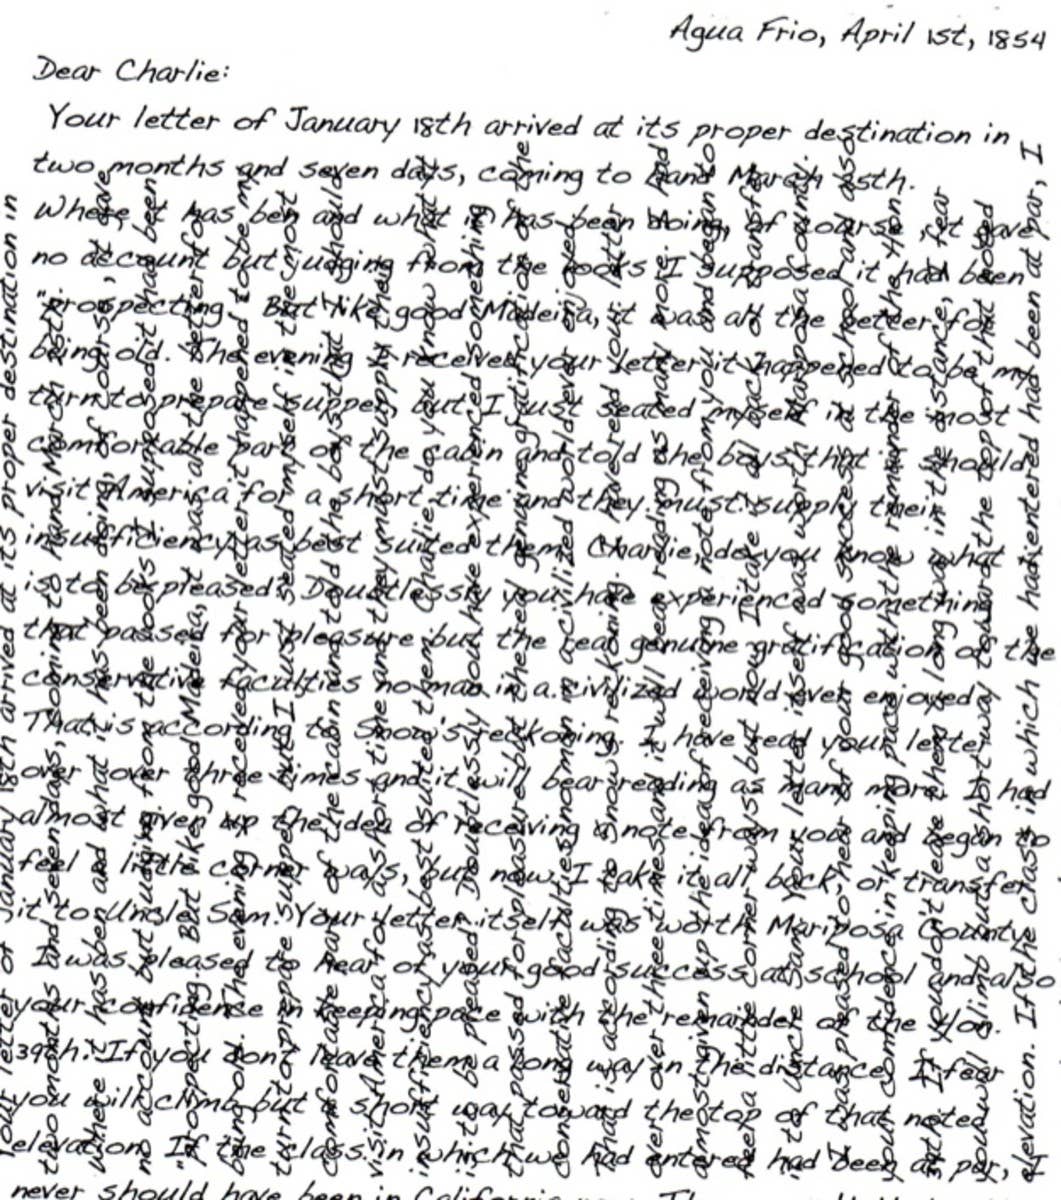 Agua Frio, April 1st, 1854
Dear Charlie:
Your letter of January 18th arrived at its proper destination in
two months and seven days, coming to hand March 25th.
Where it has ben and what it has been doing, of course, it gave
no account but judging from the looks I supposed it had been
"prospecting." But like good Madeira, it was all the better for
being old. The evening I received your letter it happened to be my
turn to prepare supper, but I just seated myself in the most
comfortable part of the cabin and told the boys that I should
visit America for a short time and they must supply their
insufficiency as best suited them. Charlie, do you know what
is to be pleased? Doubtlessly you have experienced something
that passed for pleasure but the real genuine gratification of the
conservative faculties no man in a civilized world ever enjoyed.
That is according to Snow's reckoning. I have read your letter
over over three times and it will bear reading as many more. I had
almost given up the idea of receiving a note from you and began to
feel a little corner ways, but now I take it all back, or transfer
it to Uncle Sam. Your letter itself was worth Mariposa County.
I was pleased to hear of your good success at school and also
your confidence in keeping pace with the remainder of the Hon.
39th. If you don't leave them a long way in the distance, I fear
you will climb but a short way toward the top of that noted
elevation. If the class in which we had entered had been at par, I
never should have been in California now.
Your letter of January 18th arrived at its proper destination in
two months and seven days, coming to hand March
where it has ben and what it has been doing, of course, it gave
no account but judging from the looks I supposed it had been
"prospecting." But like good Madeira, it was all the better for
being old. The evening I received your letter it happened to be my
turn to prepare supper, but I just seated myself in the most
comfortable part of the cabin and told the boys that I should
visit America for a short time and they must supply their
insufficiency as best suited them. Charlie, do you know what
is to be pleased? Doubtlessly you have experienced something
that passed for pleasure but the real genuine gratification of the
conservative faculties no man in a civilized world ever enjoyed.
That is according to Snow's reckoning. I have read your letter
over over three times and it will bear reading as many more. I had
almost given up the idea of receiving a note from you and began to
feel a little corner ways, but now I take it all back, or transfer
it to Uncle Sam. Your letter itself was worth Mariposa County.
I was pleased to hear of your good success at school and also
your confidence in keeping pace with the remainder of the Hon.
39th. If you don't leave them a long way in the distance, I fear
you will climb but a short way toward the top of that noted
elevation. If the class in which we had entered had been at par, I